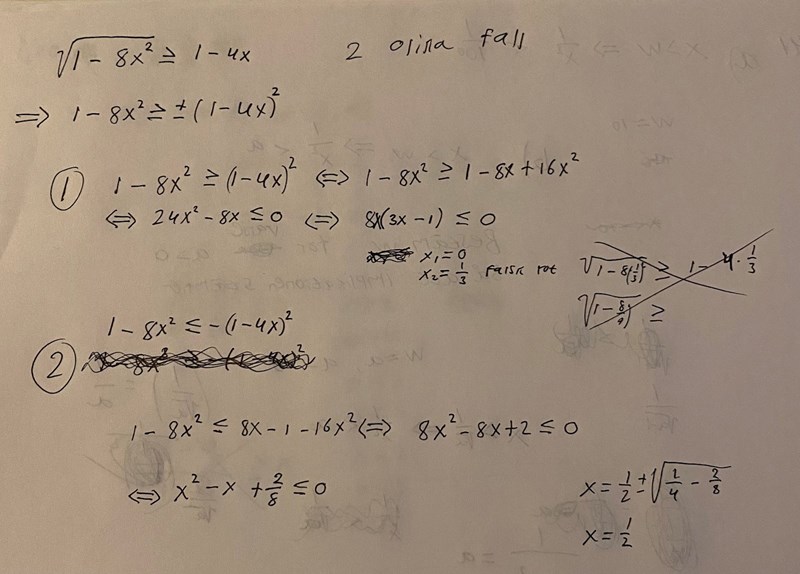 √(1 - 8x²) ≥ 1 - 4x 2 olika fall
⇒ 1 - 8x² ≥ ±(1 - 4x)²
① 1 - 8x² ≥ (1 - 4x)² ⇔ 1 - 8x² ≥ 1 - 8x + 16x²
⇔ 24x² - 8x ≤ 0 ⇔ 8x(3x - 1) ≤ 0
x₁ = 0
x₂ = 1/3 falsk rot √(1 - 8(1/3)) ≥ 1 - 4 · 1/3
√(1 - 8/9) ≥
1 - 8x² ≤ -(1 - 4x)²
②
1 - 8x² ≤ 8x - 1 - 16x² ⇔ 8x² - 8x + 2 ≤ 0
⇔ x² - x + 2/8 ≤ 0 x = 1/2 ± √(1/4 - 2/8)
x = 1/2